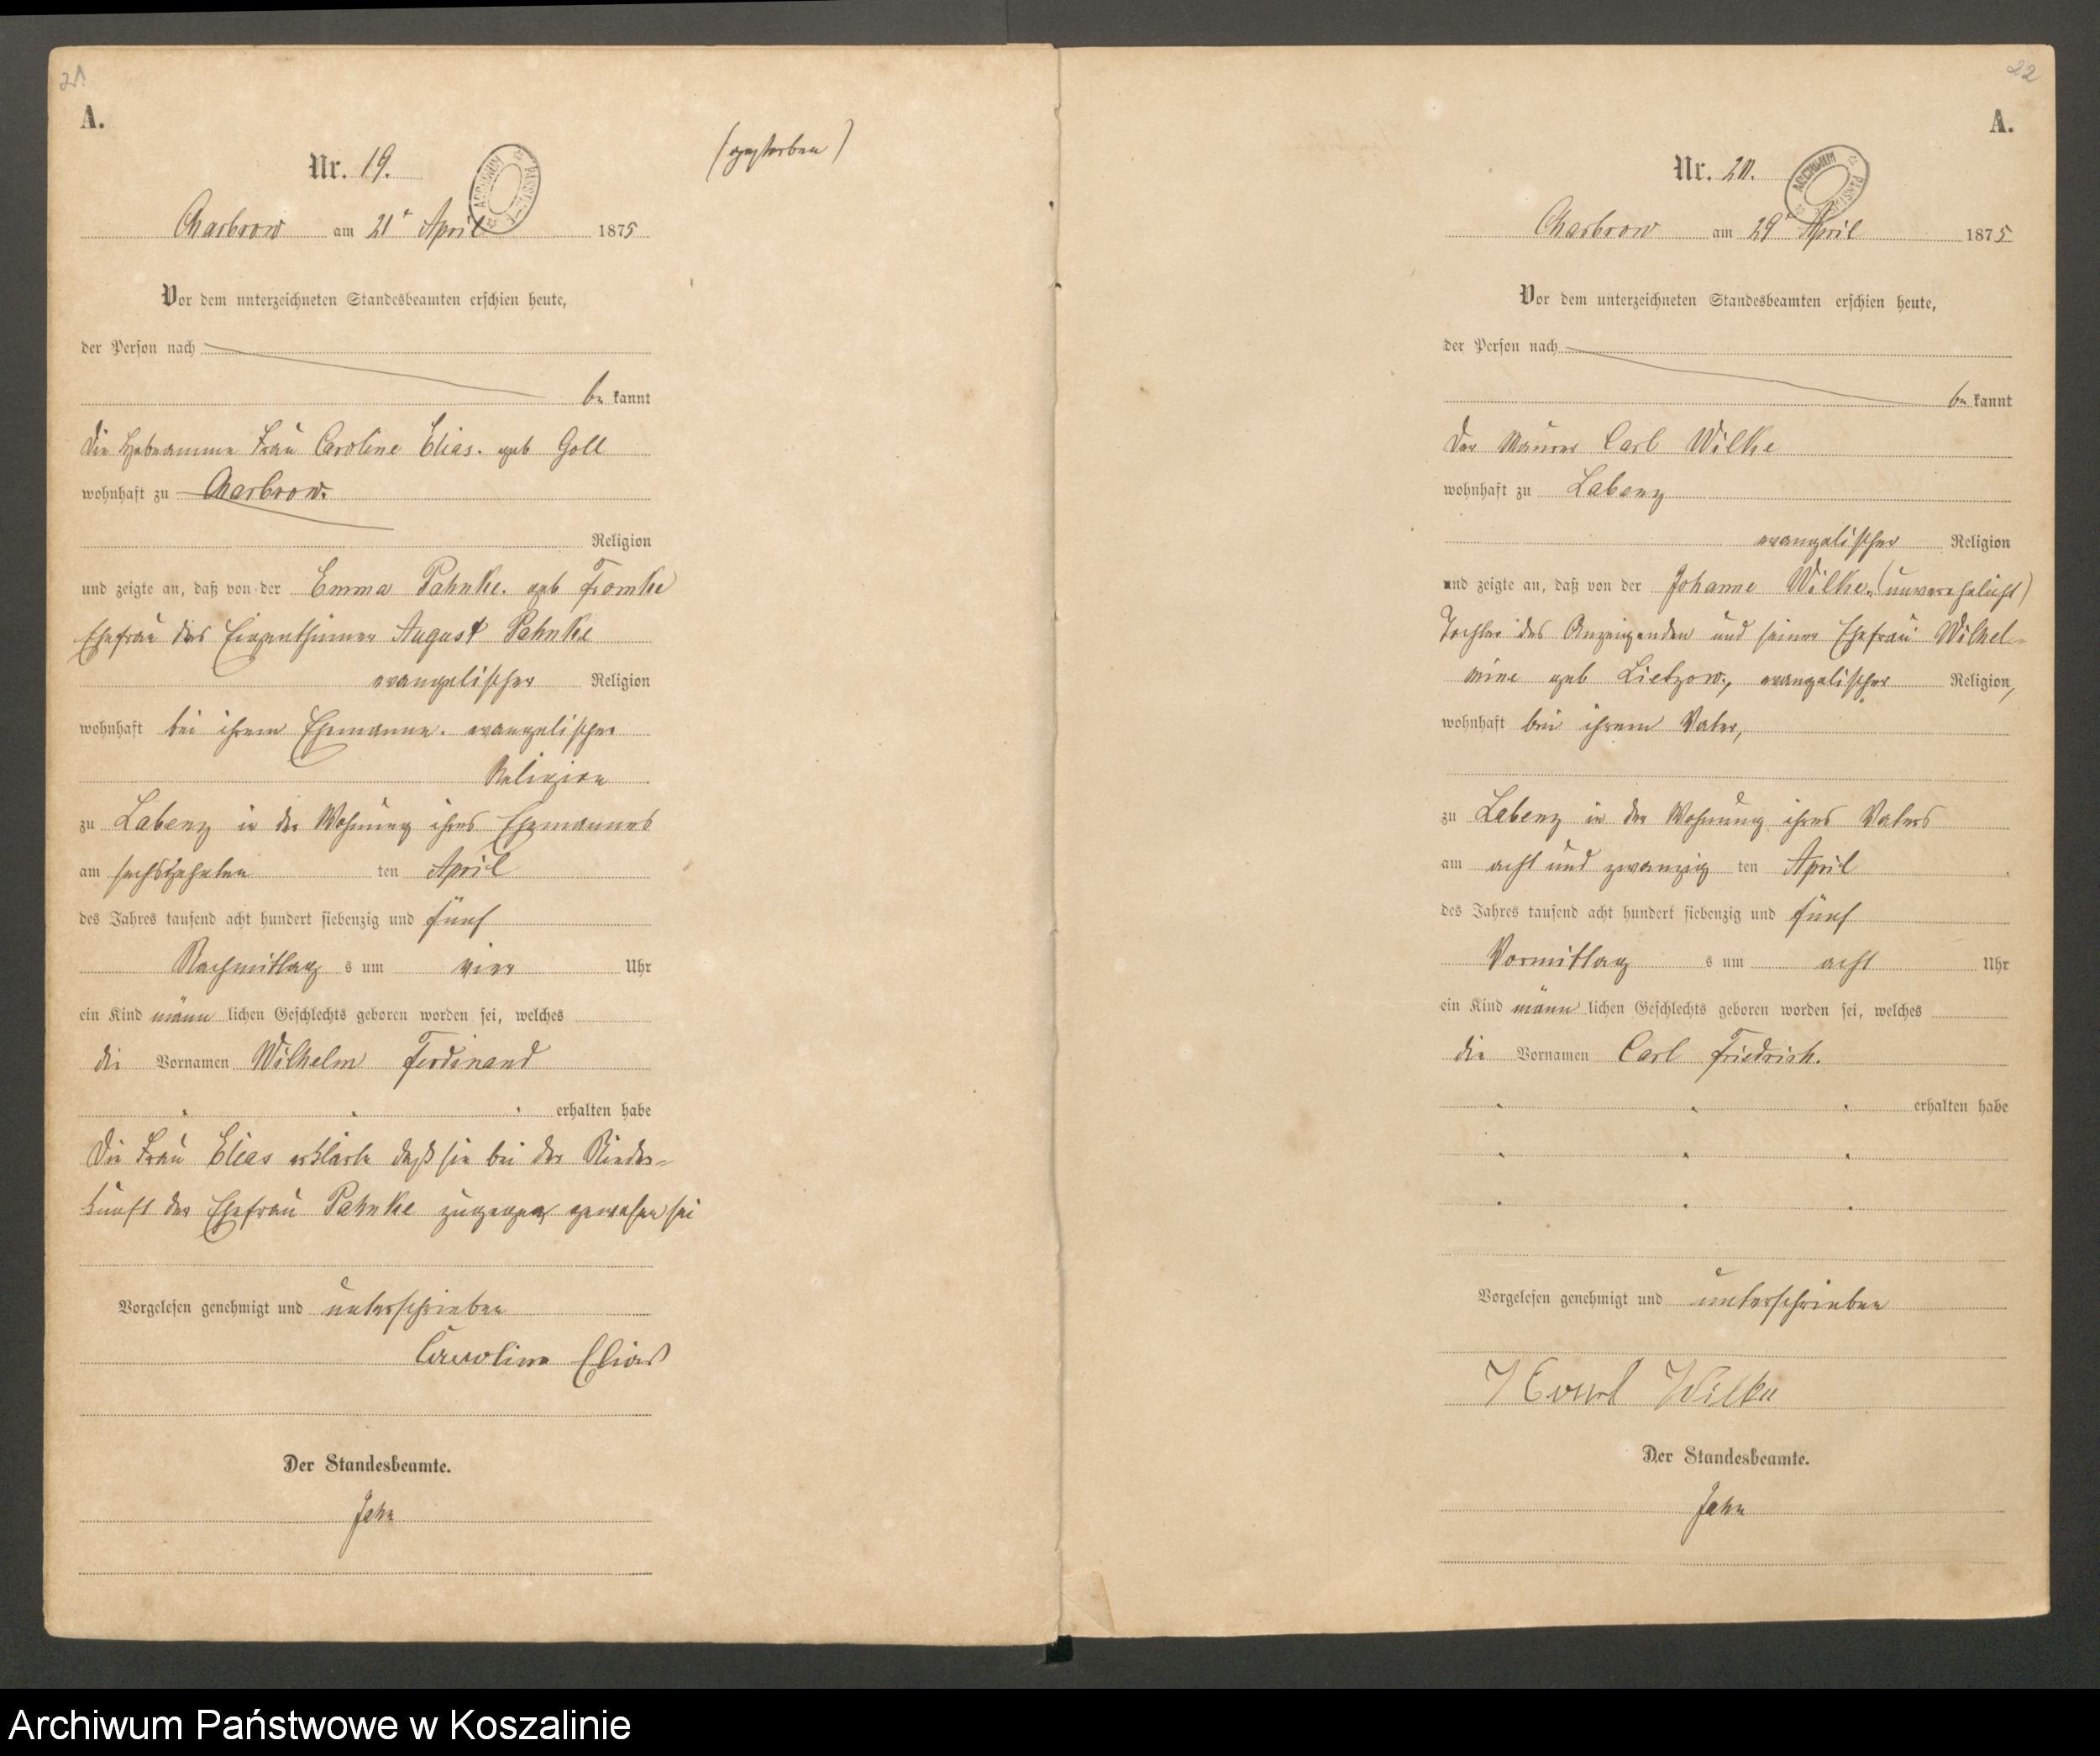 21
A.
Nr. 19.
(gestorben)
ARCHIWUM
Charbrow am 21t April 1875
Vor dem unterzeichneten Standesbeamten erschien heute,
der Person nach
be kannt
Die Hebeamme Frau Caroline Elias. geb Goll
wohnhaft zu Charbrow.
Religion
und zeigte an, daß von der Emma Pahnke. geb Fromke
Ehefrau des Eigenthümer August Pahnke
evangelischer Religion
wohnhaft bei ihrem Ehemanne. evangelischer
Religion
zu Labenz in der Wohnung ihres Ehemannes
am sechszehnten ten April
des Jahres tausend acht hundert siebenzig und fünf
Nachmittag s um vier Uhr
ein Kind männ lichen Geschlechts geboren worden sei, welches
die Vornamen Wilhelm Ferdinand
erhalten habe
Die Frau Elias erklärte daß sie bei der Nieder=
kunft der Ehefrau Pahnke zugegen gewesen sei
Vorgelesen genehmigt und unterschrieben
Caroline Elias
Der Standesbeamte.
Jahn
22
A.
Nr. 20.
ARCHIWUM
Charbrow am 29t April 1875
Vor dem unterzeichneten Standesbeamten erschien heute,
der Person nach
be kannt
Der Maurer Carl Wilke
wohnhaft zu Labenz
evangelischer Religion
und zeigte an, daß von der Johanne Wilke. (unverehelicht)
Tochter des Anzeigenden und seiner Ehefrau Wilhel=
mine geb Lietzow., evangelischer Religion,
wohnhaft bei ihrem Vater,
zu Labenz in der Wohnung ihres Vaters
am acht und zwanzig ten April
des Jahres tausend acht hundert siebenzig und fünf
Vormittag s um acht Uhr
ein Kind männ lichen Geschlechts geboren worden sei, welches
die Vornamen Carl Friedrich.
erhalten habe
Vorgelesen genehmigt und unterschrieben
Carl Wilke
Der Standesbeamte.
Jahn
Archiwum Państwowe w Koszalinie